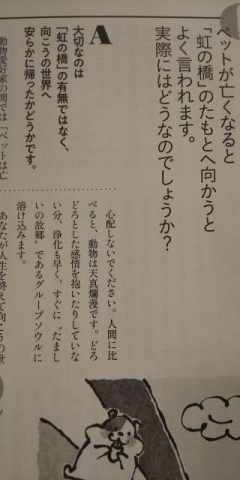 ペットが亡くなると
「虹の橋」のたもとへ向かうと
よく言われます。
実際にはどうなのでしょうか？
A
大切なのは
「虹の橋」の有無ではなく、
向こうの世界へ
安らかに帰ったかどうかです。
心配しないでください。人間に比
べると、動物は天真爛漫です。どろ
どろとした感情を抱いたりしていな
い分、浄化も早く、すぐに〝たまし
いの故郷〟であるグループソウルに
溶け込みます。
あなたが人生を終えて向こうの世
動物愛好家の間では「ペットは亡